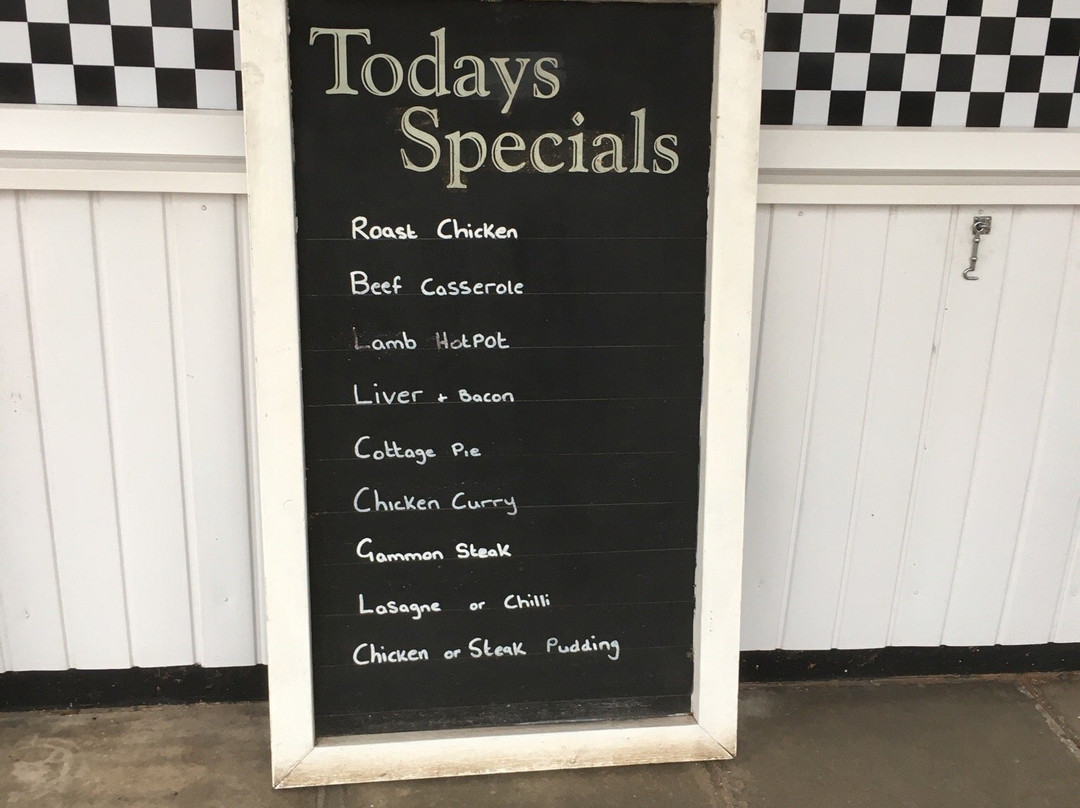 Todays
Specials
Roast Chicken
Beef Casserole
Lamb HotPot
Liver + Bacon
Cottage Pie
Chicken Curry
Gammon Steak
Lasagne or Chilli
Chicken or Steak Pudding